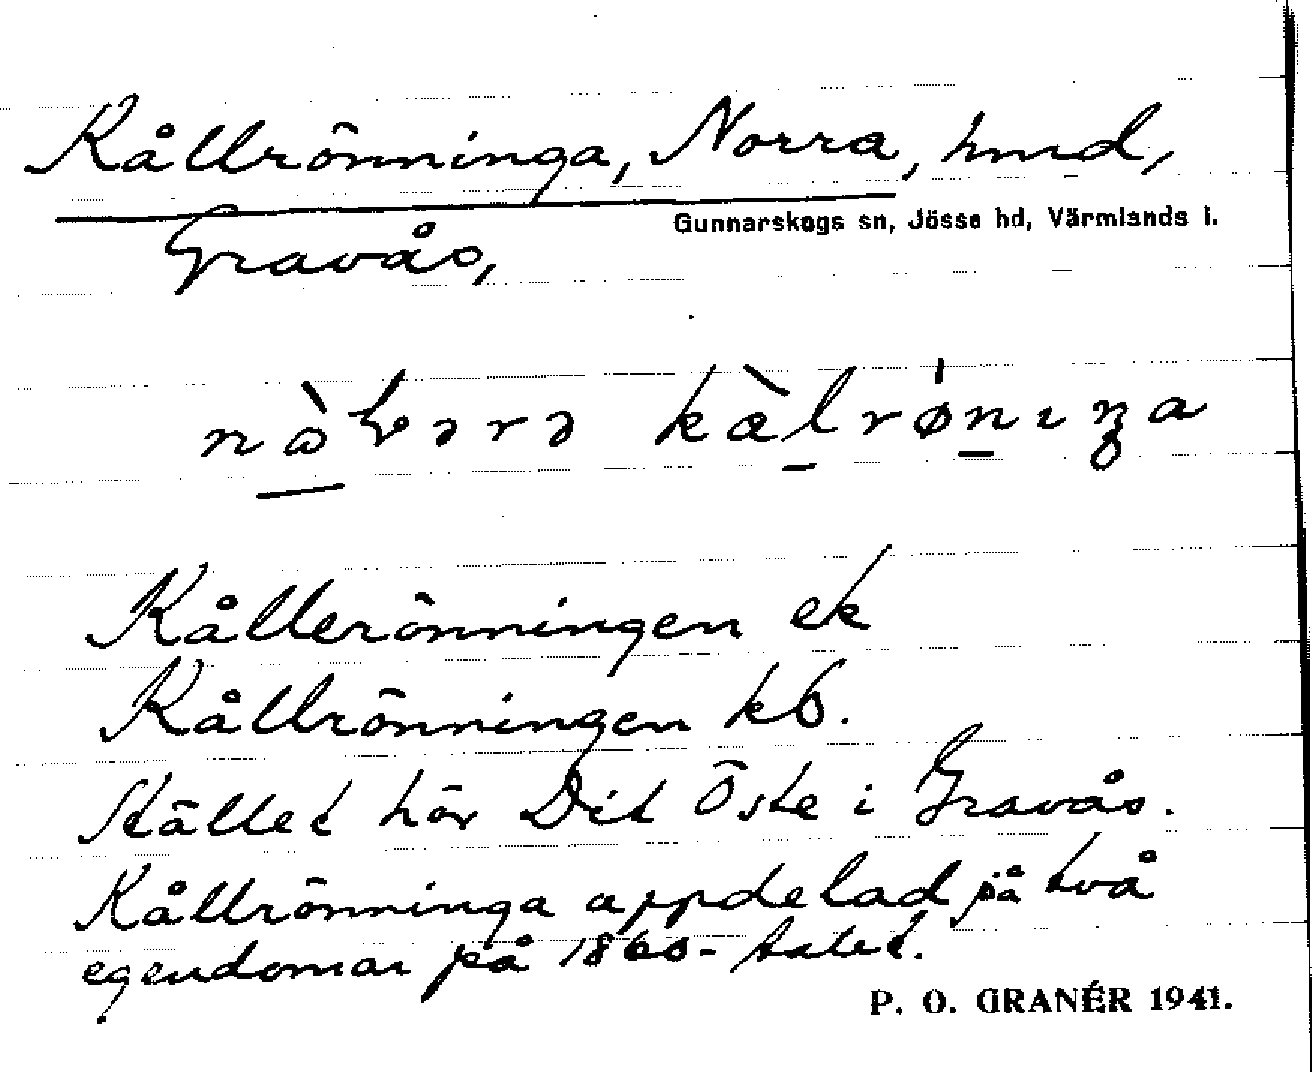 Kållrönninga, Norra, hmd,
Gunnarskogs sn, Jösse hd, Värmlands l.
Gravås,
Kållerönningen ek
Kållrönningen kb.
Stället hör Dit Öste i Gravås.
Kållrönninga uppdelad på två
egendomar på 1860-talet.
P. O. GRANÉR 1941.